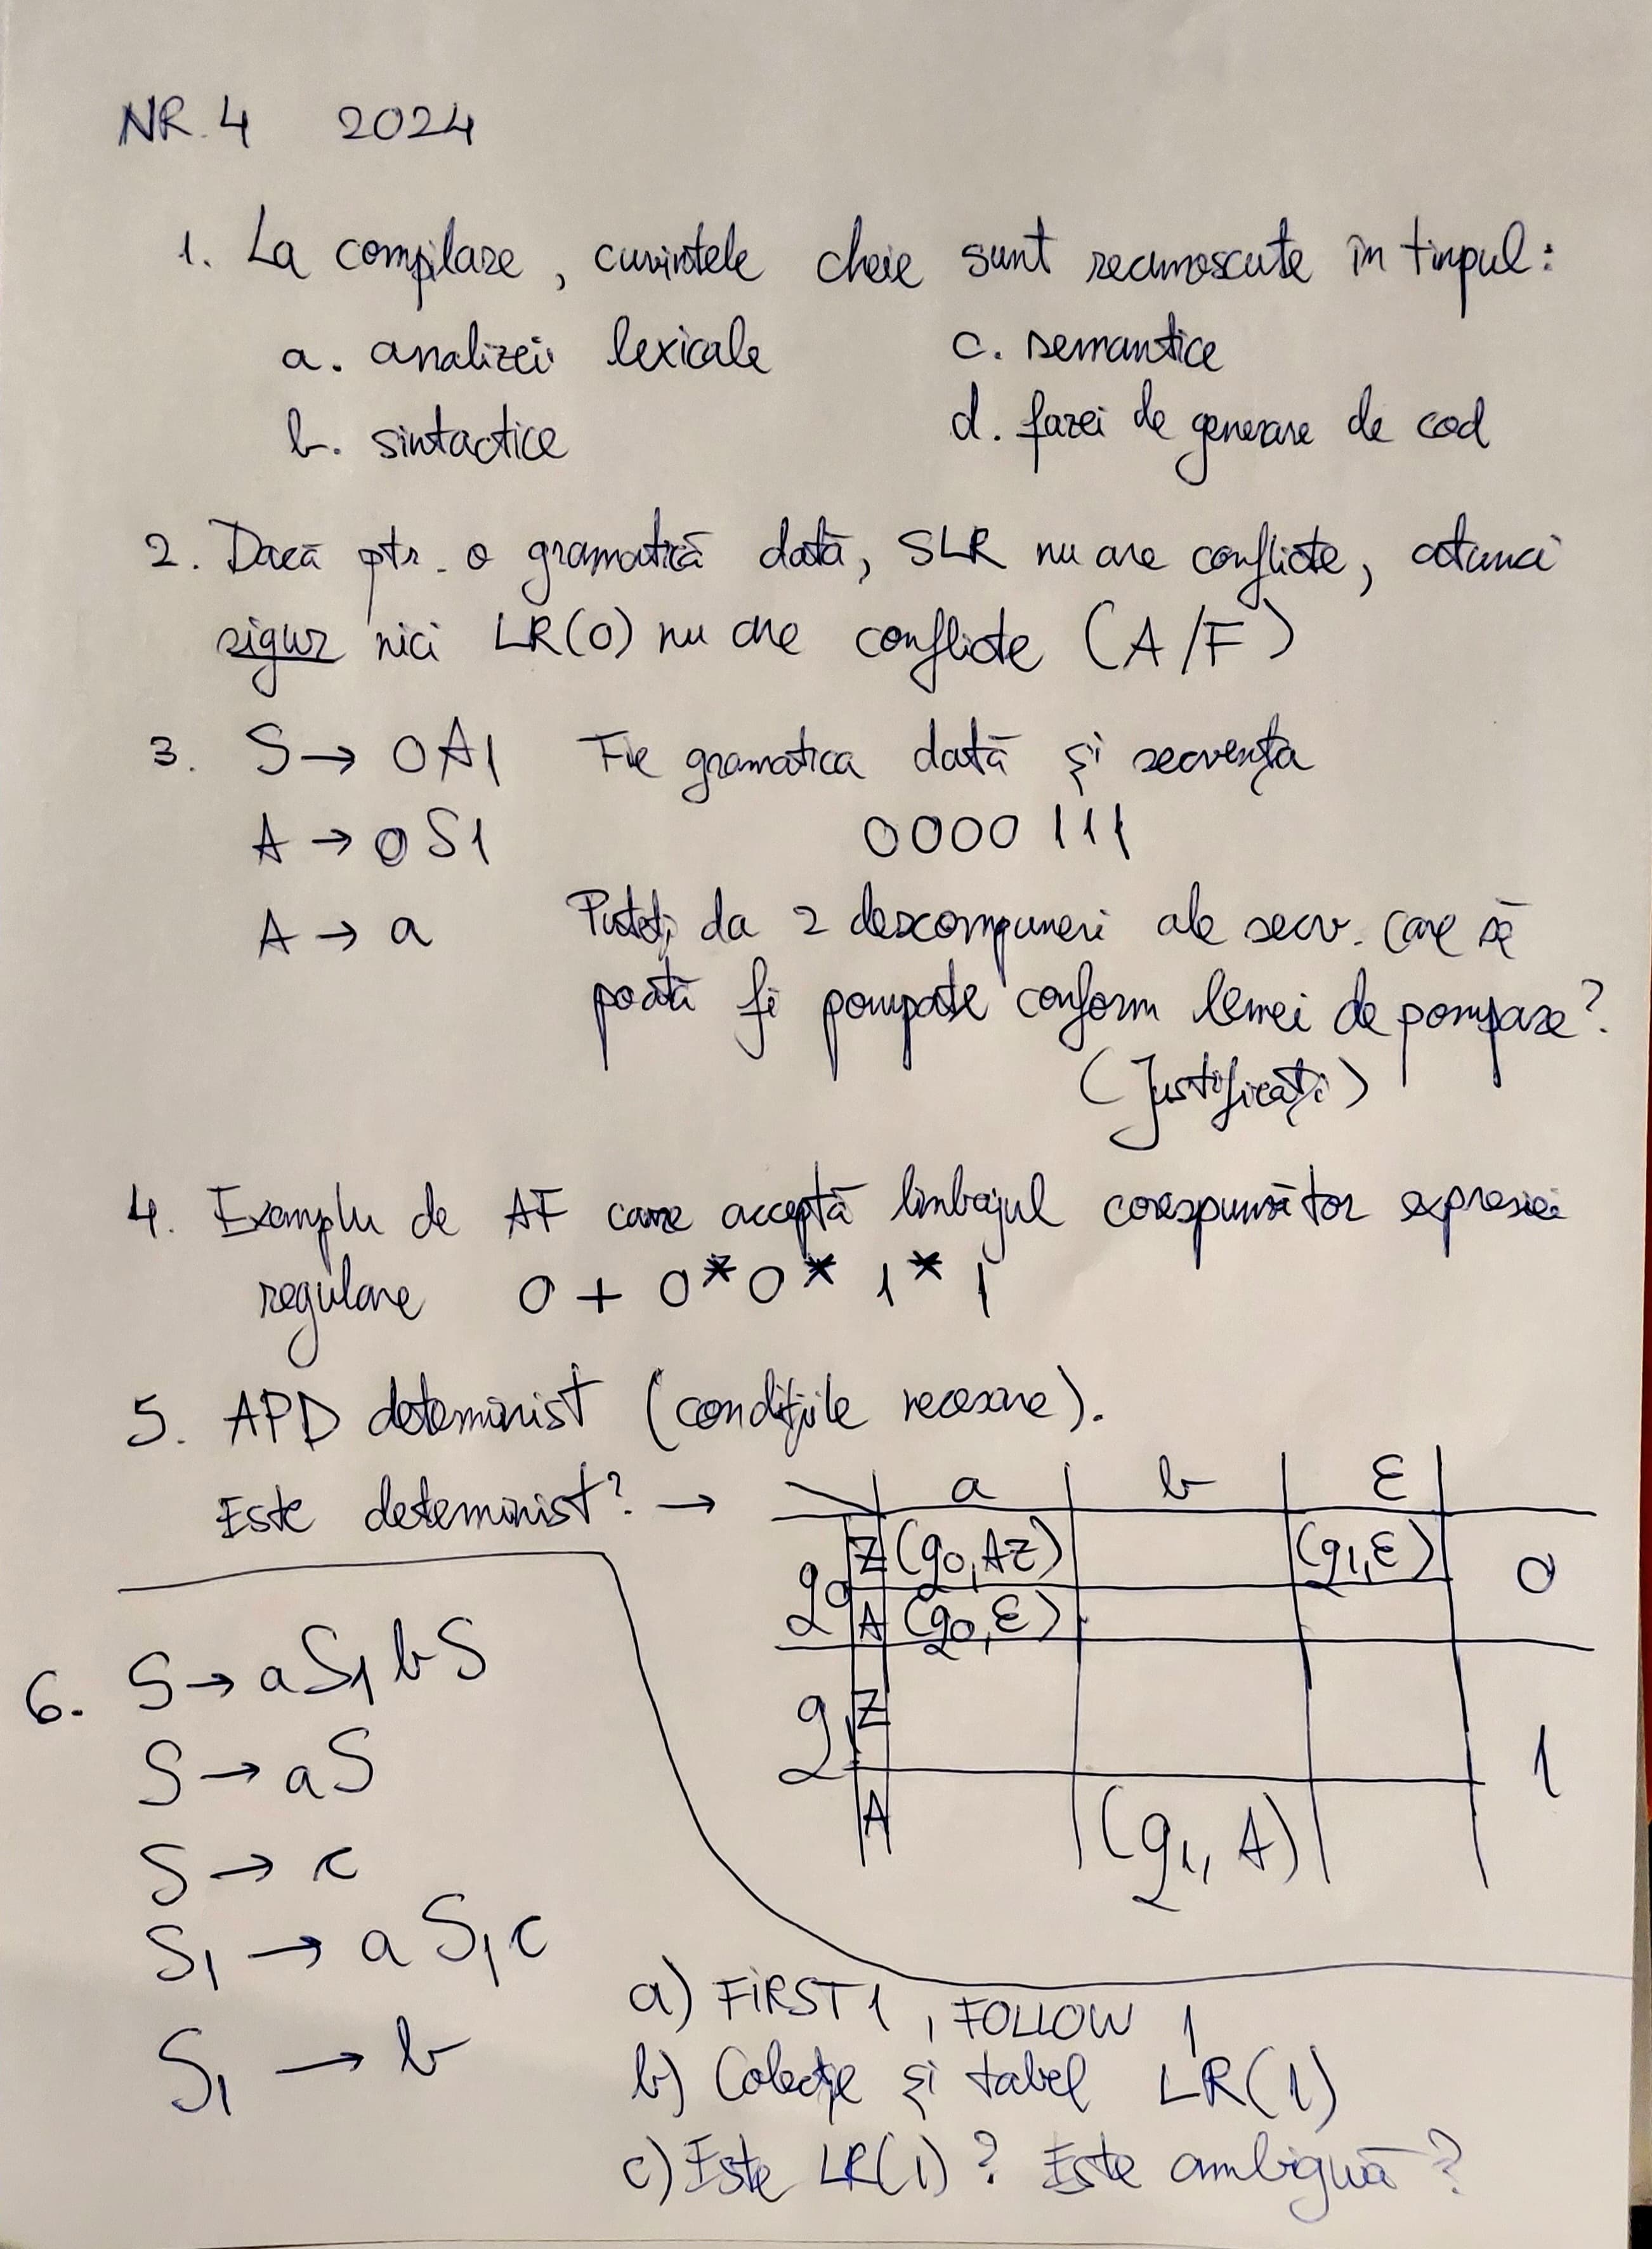 NR. 4 2024
1. La compilare, cuvintele cheie sunt recunoscute în timpul:
a. analizei lexicale c. semantice
b. sintactice d. fazei de generare de cod
2. Dacă ptr. o gramatică dată, SLR nu are conflicte, atunci
sigur nici LR(0) nu are conflicte (A/F)
3. S → 0A1 Fie gramatica dată și secvența
A → 0S1 0000111
A → a Puteți da 2 descompuneri ale secv. care să
poată fi pompate conform lemei de pompare?
(Justificați)
4. Exemplu de AF care acceptă limbajul corespunzător expresiei
regulare 0 + 0*0* 1*1
5. APD determinist (condițiile necesare).
Este determinist? →
a b ε
q0 Z (q0, AZ) (q1, ε) 0
A (q0, ε)
q1 Z 1
A (q1, A)
6. S → aS1bS
S → aS
S → c
S1 → aS1c
S1 → b
a) FIRST1, FOLLOW 1
b) Colecție și tabel LR(1)
c) Este LR(1)? Este ambiguă?